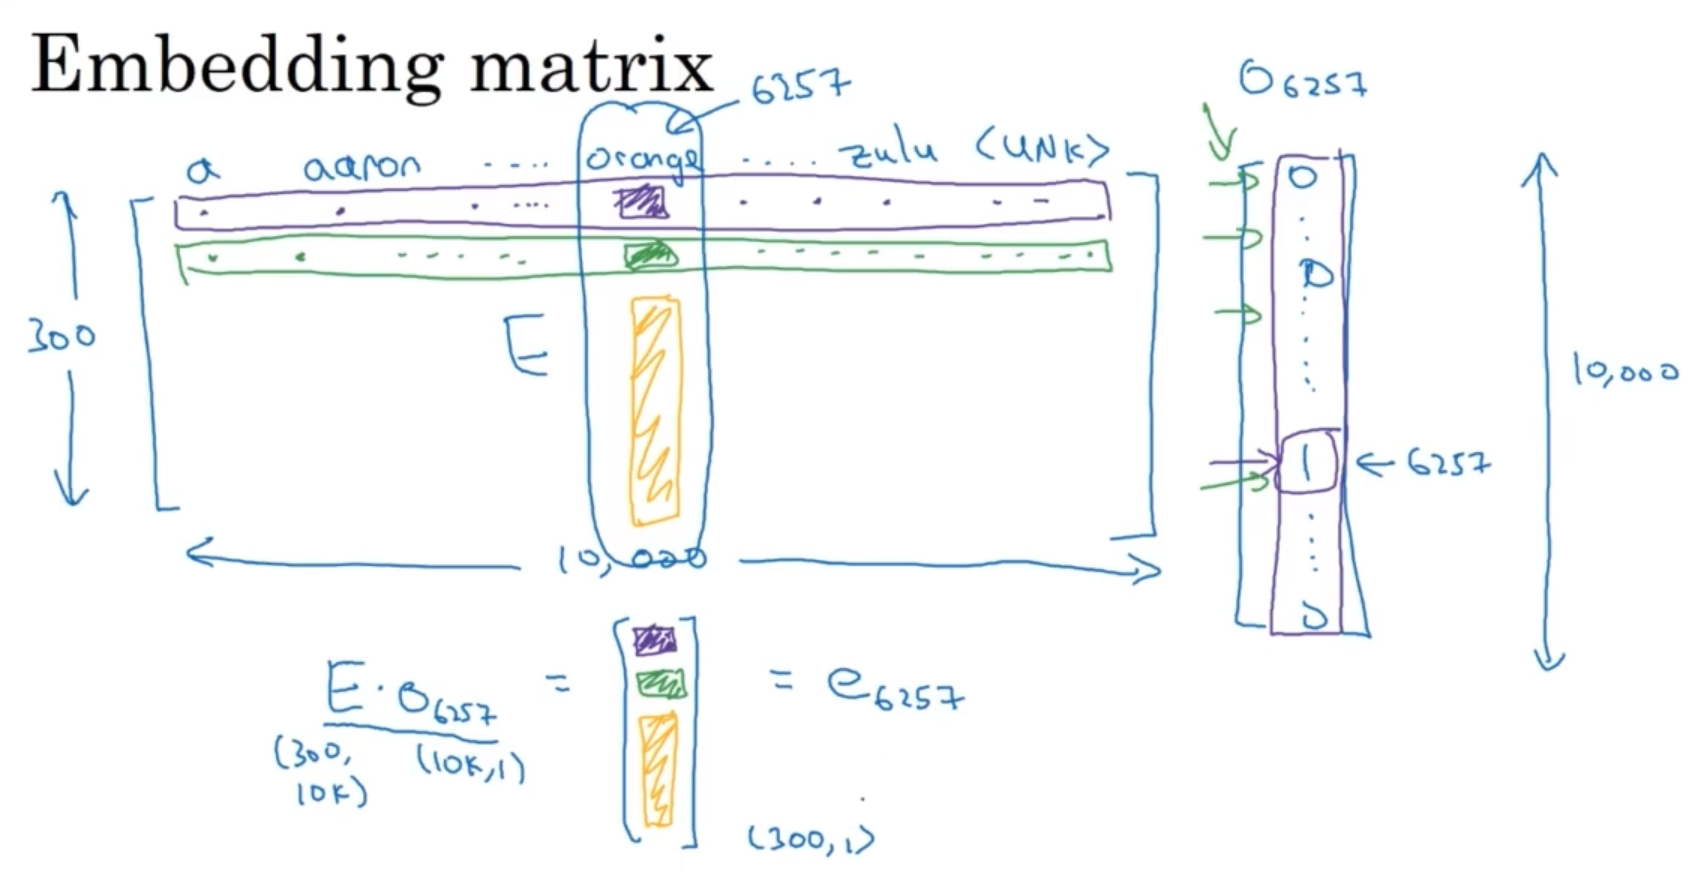 Embedding matrix
6257
O6257
a aaron ..... orange ..... zulu <UNK>
0
0
E
300
10,000
1 ← 6257
10,000
0
E · O6257 = = e6257
(300, 10K) (10K,1)
(300,1)